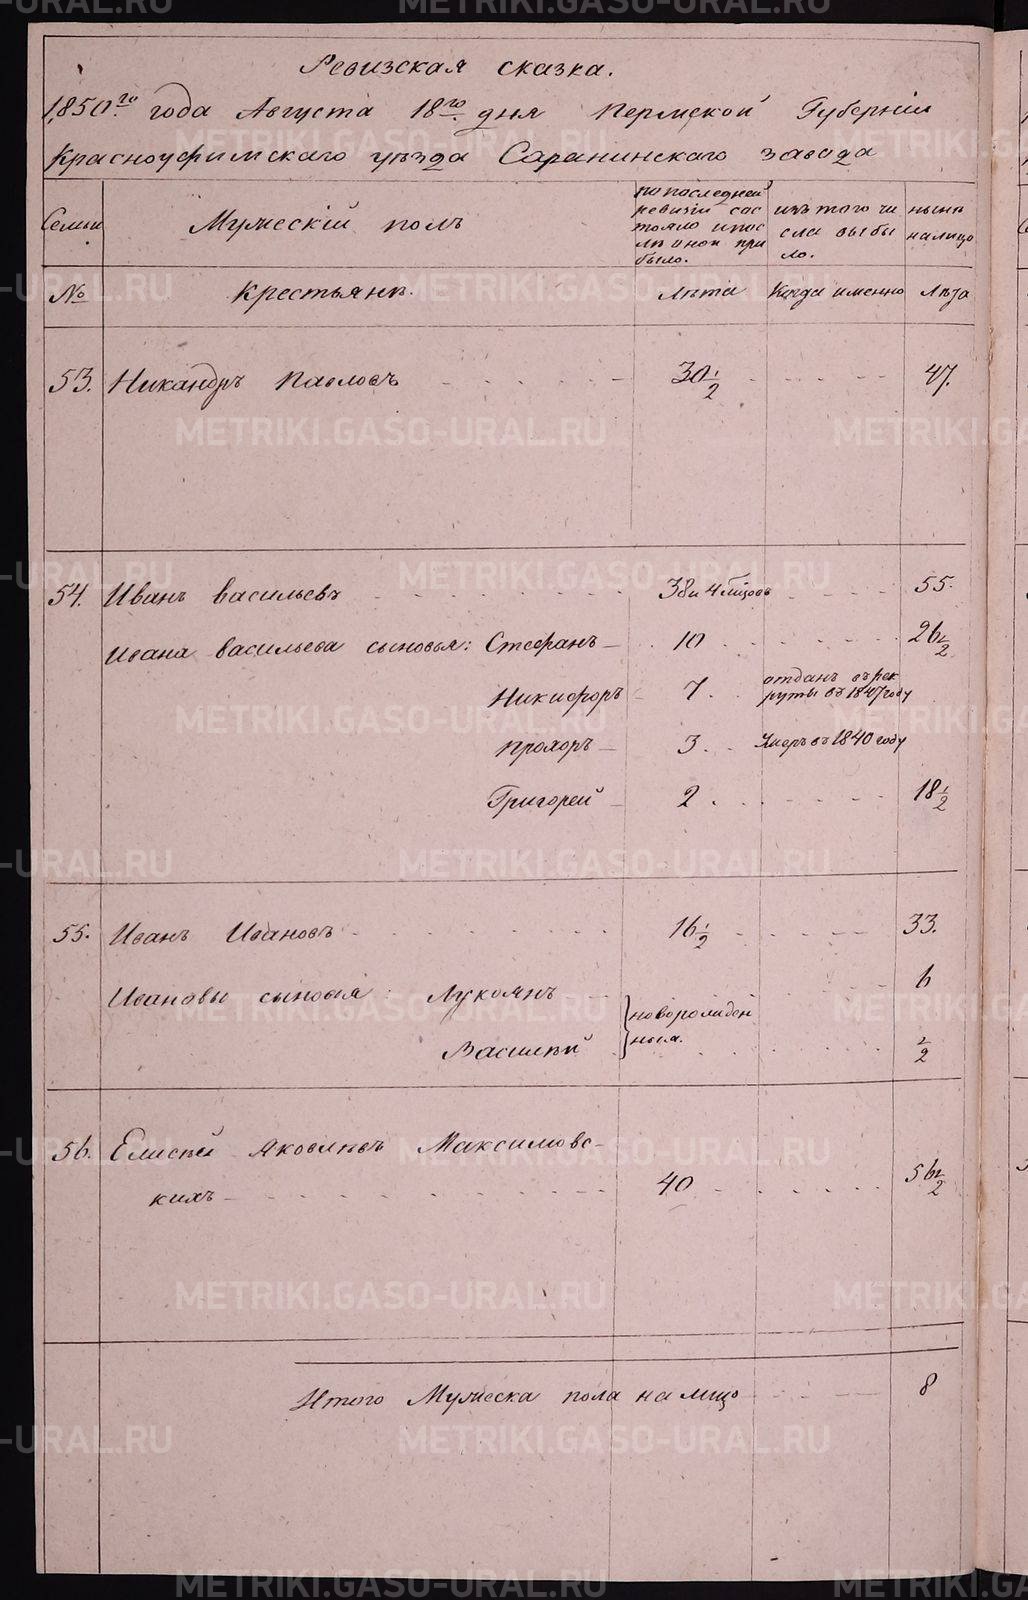 Ревизская сказка.
1850го года Августа 18го дня Пермской Губернiи
Красноуфимскаго уѣзда Саранинскаго завода
Семьи
Мужескiй полъ
по последней
ревизiи сос
тояло и пос
лѣ оной при
было.
изъ того чи
сла выбы
ло.
нынѣ
налицо
№
Крестьянѣ.
Лѣта
Когда именно
Лѣта
53. Никандръ Павловъ 30 1/2 47.
54. Иванъ Васильевъ 38 и 4 мѣсяцовъ 55.
Ивана Васильева сыновья: Стефанъ 10 26 1/2
Никифоръ 7. отданъ въ рек
руты въ 1847 году
Прохоръ 3. Умеръ въ 1840 году
Григорей 2. 18 1/2
55. Иванъ Ивановъ 16 1/2 33.
Ивановы сыновья Лукоянъ 6
новорожден
ныя.
Василѣй 1/2
56. Елисѣй Яковлевъ Максимовс-
кихъ 40 56 1/2
Итого Мужеска пола на лицо 8
METRIKI.GASO-URAL.RU